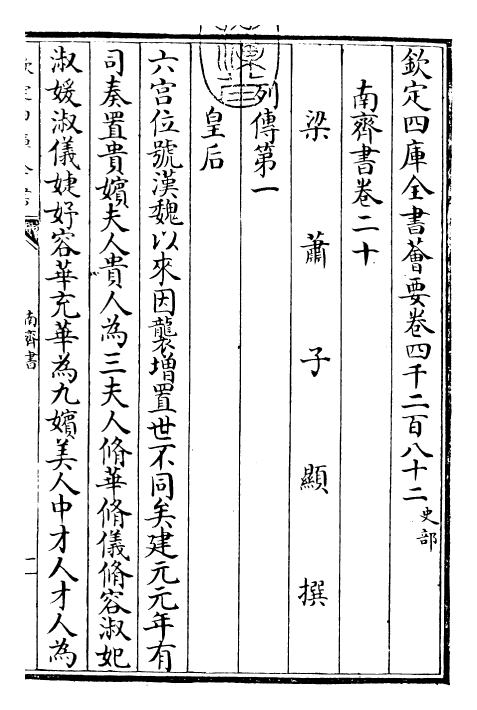 欽定四庫全書薈要卷四千二百八十二 史部
南齊書卷二十
梁蕭子顯撰
列傳第一
皇后
六宮位號漢魏以來因襲增置世不同矣建元元年有
司奏置貴嬪夫人貴人為三夫人脩華脩儀脩容淑妃
淑媛淑儀婕妤容華充華為九嬪美人中才人才人為
南齊書